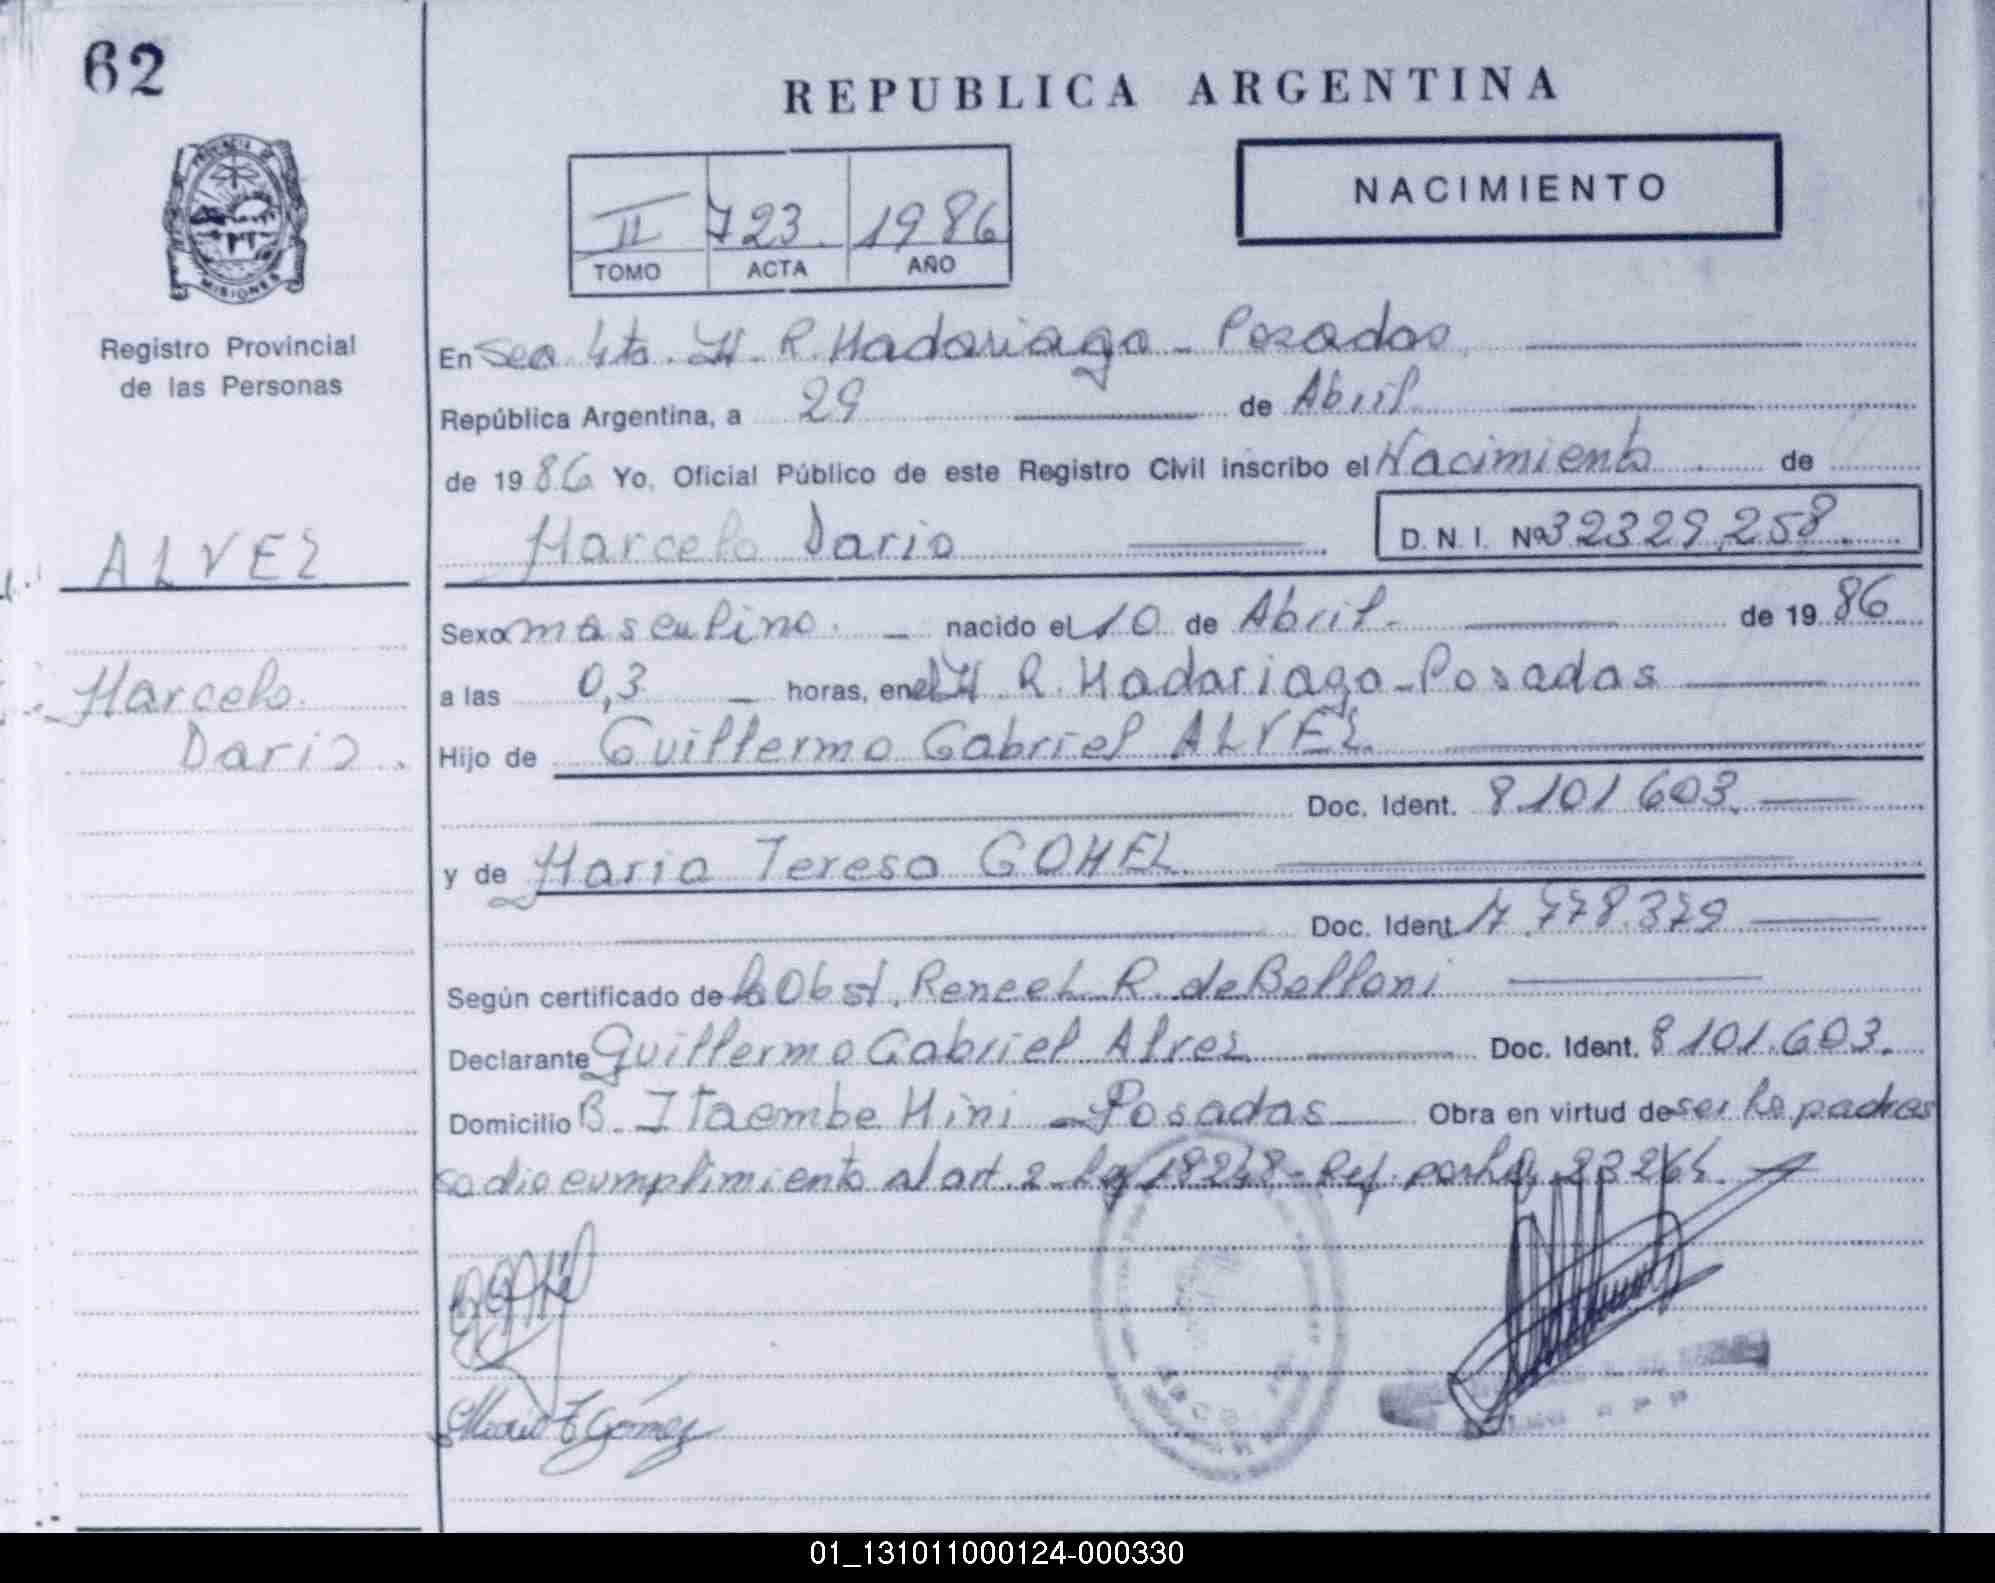 62
REPUBLICA ARGENTINA
PROVINCIA DE
MISIONES
Registro Provincial
de las Personas
II 723. 1986
TOMO ACTA AÑO
NACIMIENTO
En Sec 4ta. H. R. Madariaga - Posadas
República Argentina, a 29 de Abril
de 1986 Yo, Oficial Público de este Registro Civil inscribo el Nacimiento de
Marcelo Dario D. N. I. Nº 32329.258
ALVEZ
Marcelo
Dario.
Sexo masculino. nacido el 10 de Abril. de 1986
a las 0,3 horas, en el H. R. Madariaga - Posadas
Hijo de Guillermo Gabriel ALVEZ
Doc. Ident. 8.101.603.
y de Maria Teresa GOMEZ
Doc. Ident. 17.778.379
Según certificado de la Obst. R. de Belloni
Declarante Guillermo Gabriel Alvez Doc. Ident. 8101.603.
Domicilio B. Itaembe Mini - Posadas Obra en virtud de ser lo padres
se dio cumplimiento al art. 2 - Ley 18248 - Ref. por Ley 23264.
Maria T Gómez
01_131011000124-000330